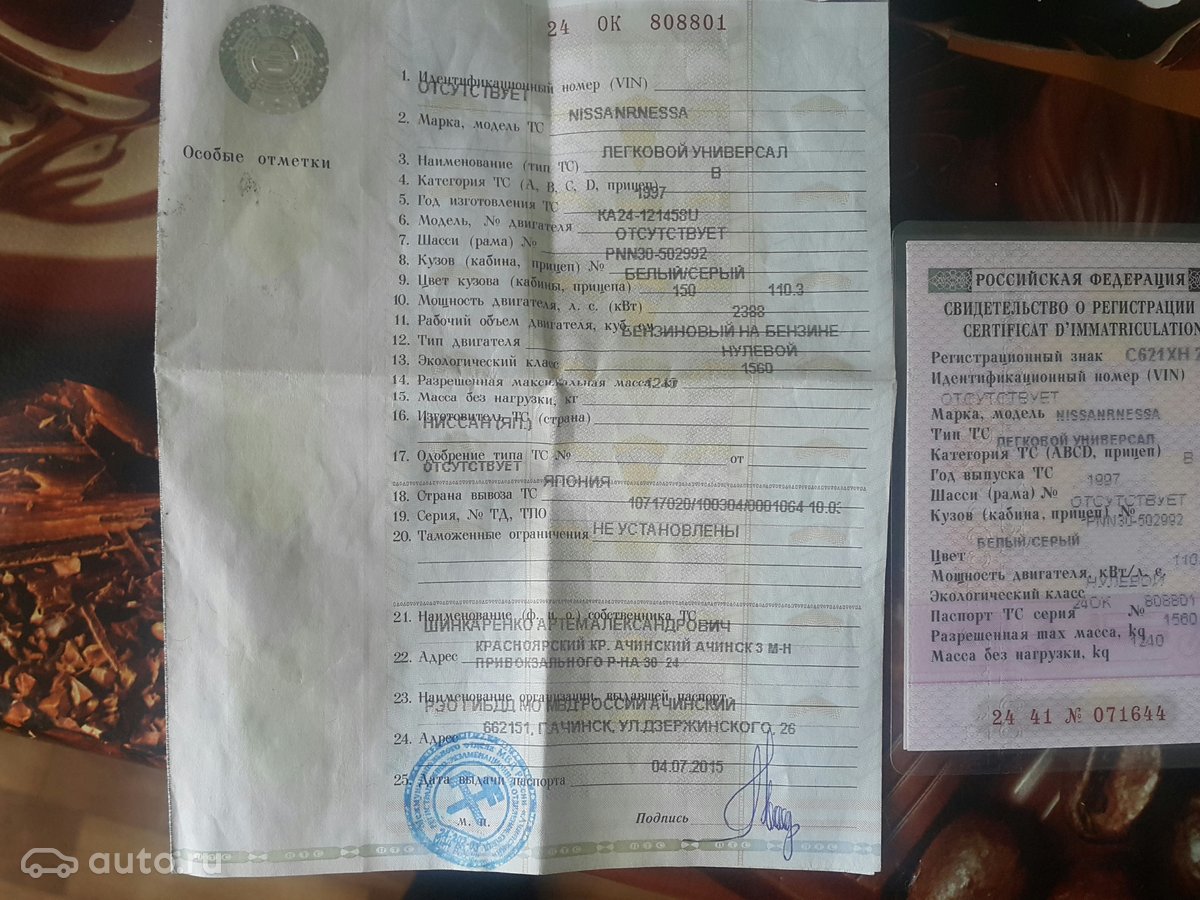 24 ОК 808801
Особые отметки
1. Идентификационный номер (VIN)
ОТСУТСТВУЕТ
2. Марка, модель ТС NISSANRNESSA
3. Наименование (тип ТС) ЛЕГКОВОЙ УНИВЕРСАЛ
4. Категория ТС (А, В, С, D, прицеп) В
5. Год изготовления ТС 1997
6. Модель, № двигателя КА24-121458U
7. Шасси (рама) № ОТСУТСТВУЕТ
8. Кузов (кабина, прицеп) № PNN30-502992
9. Цвет кузова (кабины, прицепа) БЕЛЫЙ/СЕРЫЙ
10. Мощность двигателя, л. с. (кВт) 150 110.3
11. Рабочий объем двигателя, куб. см 2388
12. Тип двигателя БЕНЗИНОВЫЙ НА БЕНЗИНЕ
13. Экологический класс НУЛЕВОЙ
14. Разрешенная максимальная масса, кг 1560
15. Масса без нагрузки, кг
16. Изготовитель ТС (страна)
НИССАН (ЯП.)
17. Одобрение типа ТС № от
ОТСУТСТВУЕТ
18. Страна вывоза ТС ЯПОНИЯ
19. Серия, № ТД, ТПО 10717020/100304/0001064 10.03
20. Таможенные ограничения НЕ УСТАНОВЛЕНЫ
21. Наименование (ф. и. о.) собственника ТС
ШИНКАРЕНКО АРТЕМ АЛЕКСАНДРОВИЧ
22. Адрес КРАСНОЯРСКИЙ КР. АЧИНСКИЙ АЧИНСК 3 М-Н
ПРИВОКЗАЛЬНОГО Р-НА 30 24
23. Наименование организации, выдавшей паспорт
РЭО ГИБДД МО МВД РОССИИ АЧИНСКИЙ
24. Адрес 662151, Г.АЧИНСК, УЛ.ДЗЕРЖИНСКОГО, 26
25. Дата выдачи паспорта 04.07.2015
М. П.
Подпись
РОССИЙСКАЯ ФЕДЕРАЦИЯ
СВИДЕТЕЛЬСТВО О РЕГИСТРАЦИИ
CERTIFICAT D'IMMATRICULATION
Регистрационный знак С621ХН
Идентификационный номер (VIN)
ОТСУТСТВУЕТ
Марка, модель NISSANRNESSA
Тип ТС ЛЕГКОВОЙ УНИВЕРСАЛ
Категория ТС (ABCD, прицеп) В
Год выпуска ТС 1997
Шасси (рама) № ОТСУТСТВУЕТ
Кузов (кабина, прицеп) № PNN30-502992
Цвет БЕЛЫЙ/СЕРЫЙ
Мощность двигателя, кВт/л. с. 110
Экологический класс НУЛЕВОЙ
Паспорт ТС серия 24ОК № 808801
Разрешенная max масса, kg 1560
Масса без нагрузки, kg 1240
24 41 № 071644
auto.ru